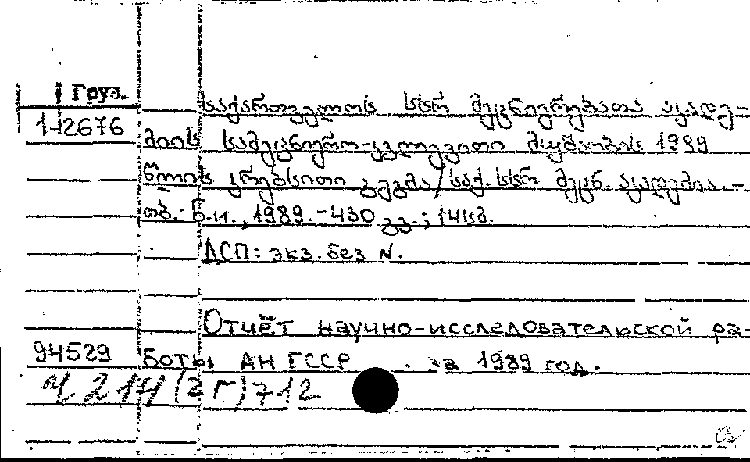 Груз.
საქართველოს სსრ მეცნიერებათა აკადე-
1-12676 მიის სამეცნიერო-კვლევითი მუშაობის 1989
წლის კრებსითი გეგმა/საქ. სსრ მეცნ. აკადემია. -
თბ.: Б.и., 1989. - 430 გვ.; 14 სმ.
ДСП: экз. без N.
Отчёт научно-исследовательской ра-
94529 боты АН ГССР за 1989 год.
Ч 214(2Г)712